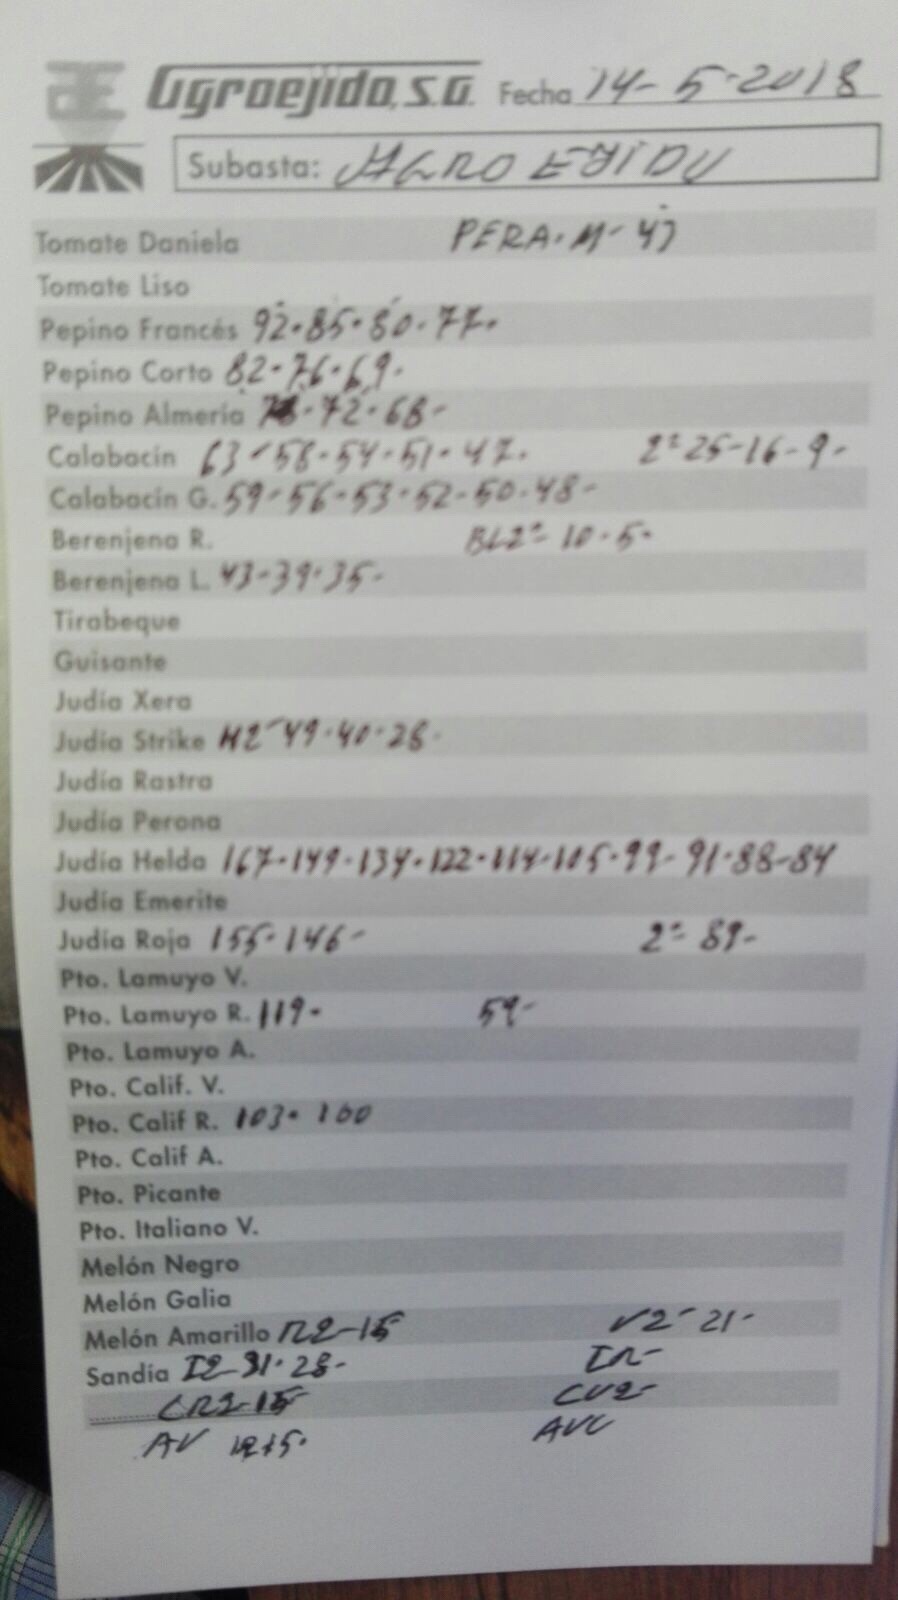 Agroejido, S.A. Fecha 14-5-2018
Subasta: AGROEJIDO
Tomate Daniela PERA. M- 47
Tomate Liso
Pepino Francés 92.85.80.77.
Pepino Corto 82.76.69.
Pepino Almería 72.68-
Calabacín 63-58.54.51.47. 2ª 25-16-9-
Calabacín G. 59-56.53.52-50.48-
Berenjena R. BL2ª- 10.5.
Berenjena L. 43-39.35-
Tirabeque
Guisante
Judía Xera
Judía Strike H2-49.40.28.
Judía Rastra
Judía Perona
Judía Helda 167.149.134.122.114-105.99-91.88-84
Judía Emerite
Judía Roja 155.146- 2ª- 89-
Pto. Lamuyo V.
Pto. Lamuyo R. 119. 59-
Pto. Lamuyo A.
Pto. Calif. V.
Pto. Calif R. 103. 100
Pto. Calif A.
Pto. Picante
Pto. Italiano V.
Melón Negro
Melón Galia
Melón Amarillo R2-15 V2- 21-
Sandía I2-31.28-
CR2-15 CV2-
AV AVC